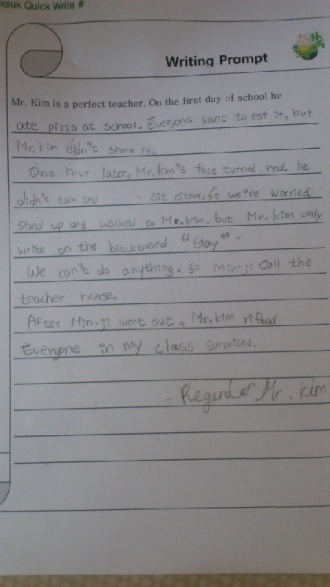 ksuk Quick Write #
Writing Prompt
Mr. Kim is a perfect teacher. On the first day of school he
ate pizza at school. Everyone want to eat it, but
Mr. kim didn't share it.
One hour later, Mr. kim's face turned red. he
didn't talk and sit either. So we're worried
stand up and walked to Mr. kim. but Mr. kim only
write on the blackboard "Stay".
We can't do anything. So Min-ji call the
teacher nurse.
After Min-ji went out, Mr. kim rifted
Everyone in my class surprised.
- Regend of Mr. kim